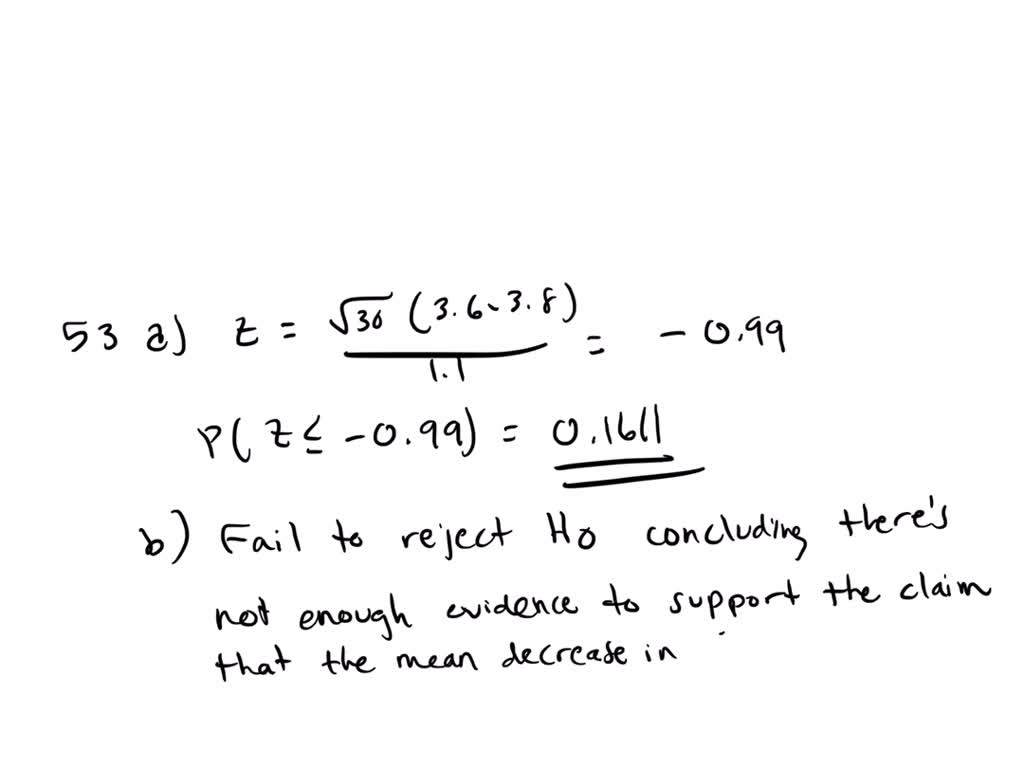 53 a) z = √30 (3.6 - 3.8) / 1.1 = - 0.99
P( Z ≤ -0.99) = 0.1611
b) Fail to reject H0 concluding there's
not enough evidence to support the claim
that the mean decrease in